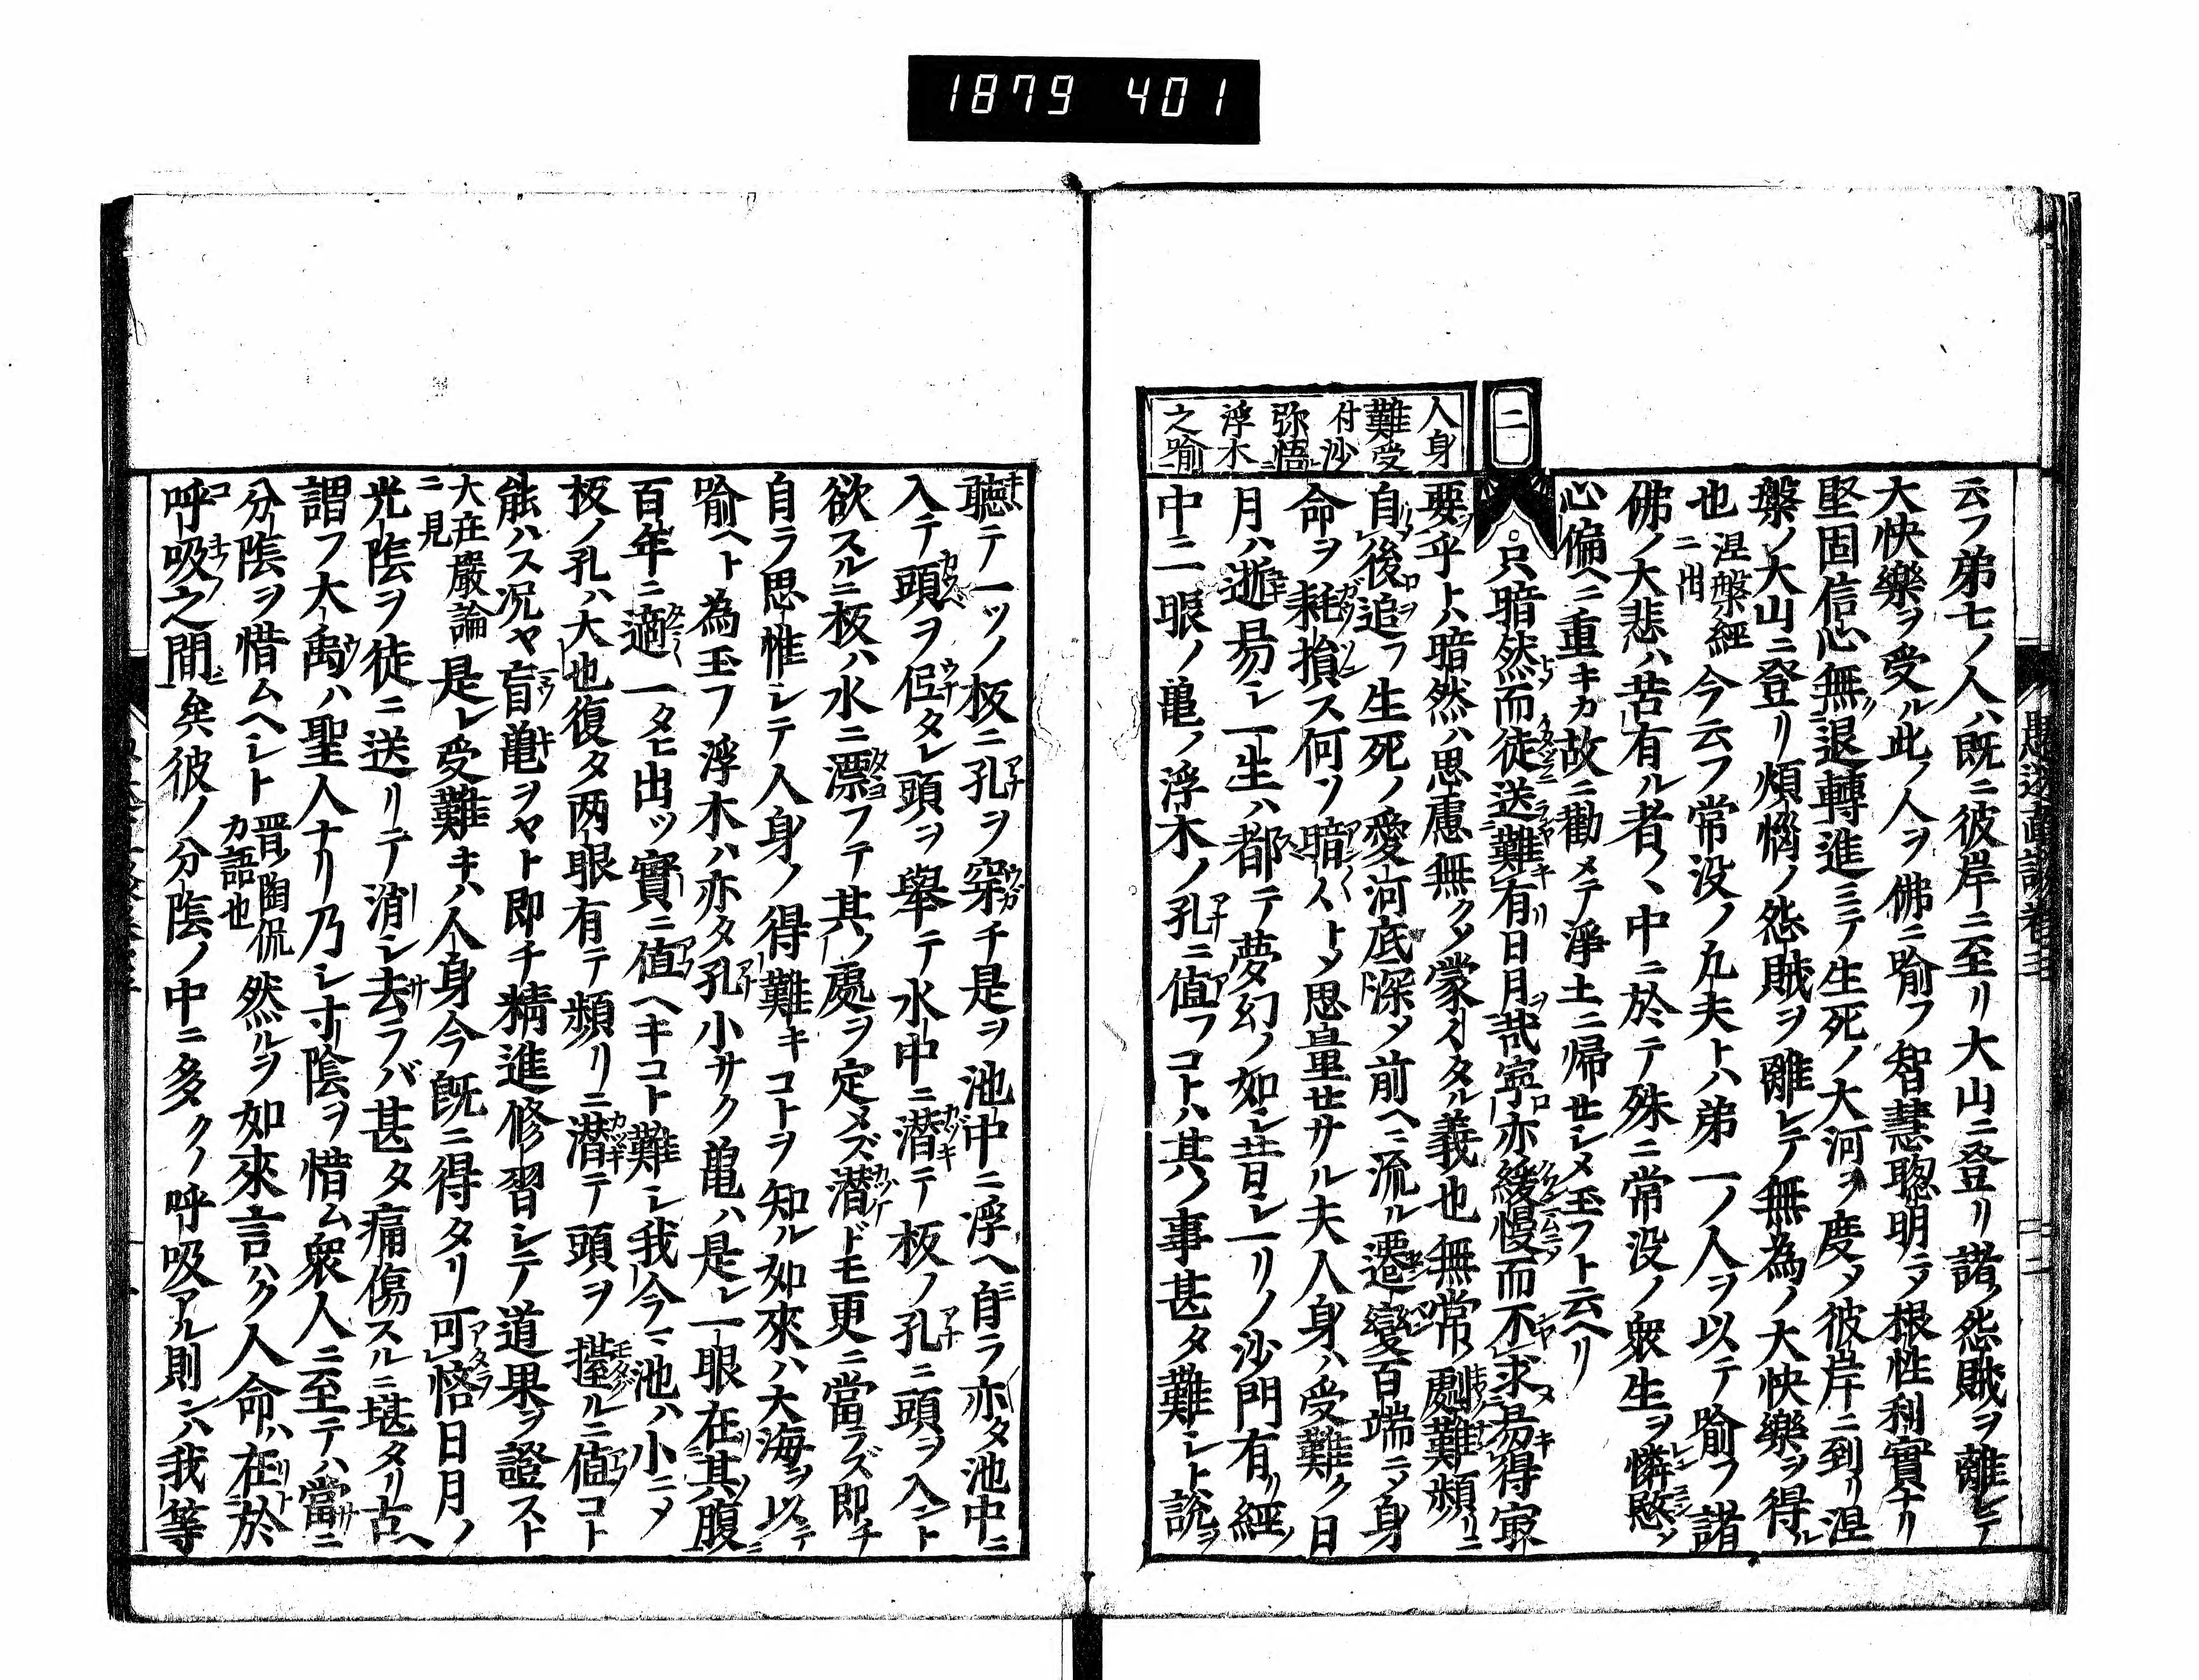 1879 401
云フ弟七ノ人ハ既ニ彼岸ニ至リ大山ニ登リ諸ノ怨賊ヲ離レテ
大快樂ヲ受ル此ノ人ヲ佛ニ喻フ智慧聰明ニメ根性利實ナリ
堅固信心無退轉進ミテ生死ノ大河ヲ度メ彼岸ニ到リ涅
槃ノ大山ニ登リ煩惱ノ怨賊ヲ離レテ無為ノ大快樂ヲ得ル
也涅槃經ニ出今云フ常没ノ凡夫トハ弟一ノ人ヲ以テ喻フ諸
佛ノ大悲ハ苦有ル者ノ中ニ於テ殊ニ常没ノ衆生ヲ憐愍メ
心偏ヘニ重キカ故ニ勸メテ淨土ニ帰セシメ玉フト云ヘリ
二
人身
難受
付沙
弥悟
浮木
之喻
○只暗然而徒送難有日月哉寧亦緩慢而不求易得寂
要乎トハ暗然ハ思慮無クメ蒙イタル義也無常ノ劇難頻リニ
自後追フ生死ノ愛河底深メ前ヘニ流ル遷變百端ニメ身
命ヲ耗損ス何ソ暗ントメ思量セサル夫人身ハ受難ク日
月ハ逝易シ一生ハ都テ夢幻ノ如シ昔シ一リノ沙門有リ經ノ
中ニ一眼ノ亀ノ浮木ノ孔ニ値フコトハ其ノ事甚タ難シト說ヲ
聴テ一ツノ板ニ孔ヲ穿チ是ヲ池中ニ浮ヘ自ラ亦タ池中ニ
入テ頭ヲ低タレ頭ヲ舉テ水中ニ潜テ板ノ孔ニ頭ヲ入ント
欲スルニ板ハ水ニ漂フテ其ノ處ヲ定メズ潜ドモ更ニ當ラズ即チ
自ラ思惟シテ人身ノ得難キコトヲ知ル如來ハ大海ヲ以テ
喻ヘト為玉フ浮木ハ亦タ孔小サク亀ハ是レ一眼在其腹ニ
百年ニ適一タヒ出ツ實ニ値ヘキコト難シ我今ノ池ハ小ニメ
板ノ孔ハ大也復タ両眼有テ頻リニ潜テ頭ヲ擡ルニ値コト
能ハス况ヤ盲亀ヲヤト即チ精進修習シテ道果ヲ證スト
大庄嚴論ニ見是レ受難キハ人身今既ニ得タリ可恡日月ノ
光陰ヲ徒ニ送リテ消シ去ラバ甚タ痛傷スルニ堪タリ古ヘ
謂フ大禹ハ聖人ナリ乃シ寸陰ヲ惜ム衆人ニ至テハ當ニ
分陰ヲ惜ムヘシト晋ノ陶侃カ語也然ルヲ如來言ハク人命ハ在於
呼吸之間矣彼ノ分陰ノ中ニ多クノ呼吸アル則ンハ我等